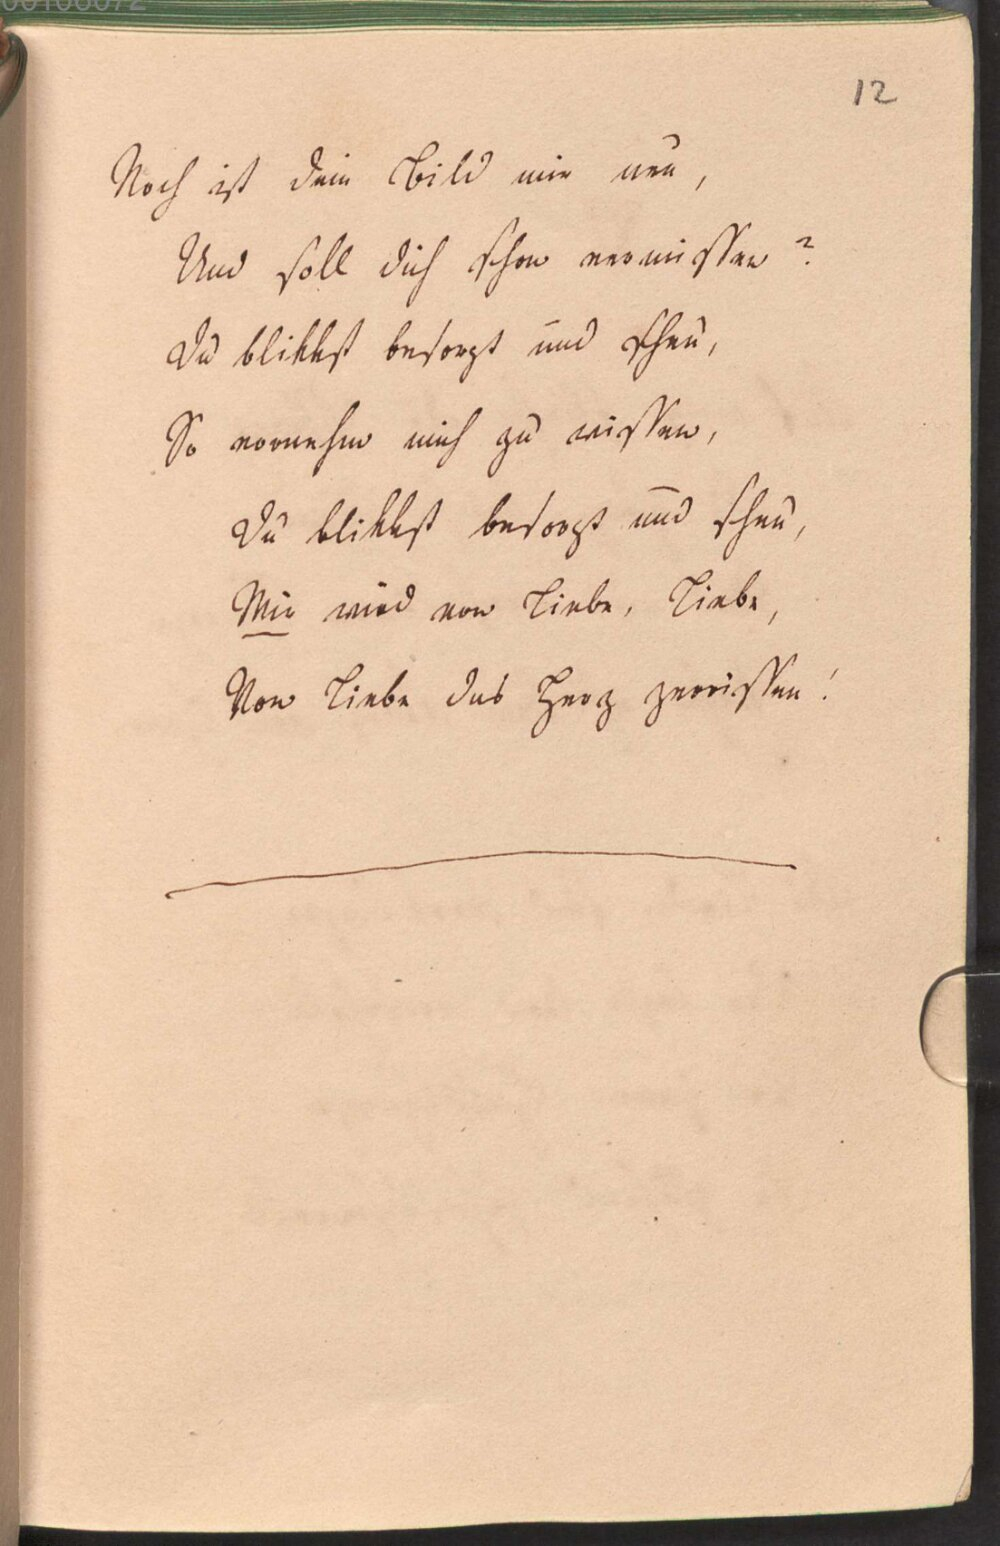 00106072
12
Noch ist dein Bild mir neu,
Und soll dich schon vermissen?
Du blikkst besorgt und scheu,
So vornehm mich zu wissen,
Du blikkst besorgt und scheu,
Mir wird von Liebe, Liebe,
Von Liebe das Herz zerrissen!